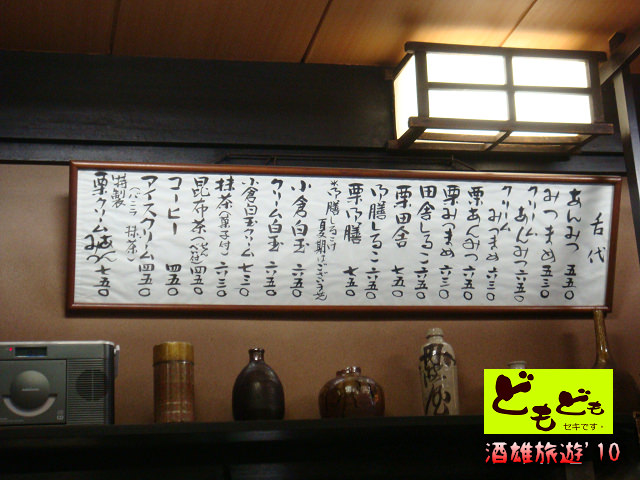 舌代
あんみつ 五五〇
みつまめ 五三〇
クリームあんみつ 六五〇
クリームみつまめ 六三〇
栗あんみつ 六五〇
栗みつまめ 六三〇
田舎しるこ 六五〇
栗田舎 七五〇
御膳しるこ 六五〇
栗御膳 七五〇
小倉白玉 六五〇
クリーム白玉 六五〇
小倉白玉クリーム 七三〇
抹茶(菓子付) 六三〇
昆布茶 四五〇
コーヒー 四五〇
アイスクリーム 四五〇
(バニラ 抹茶)
特製
栗クリームあんみつ 七五〇
どもども
セキです・
酒雄旅遊'10